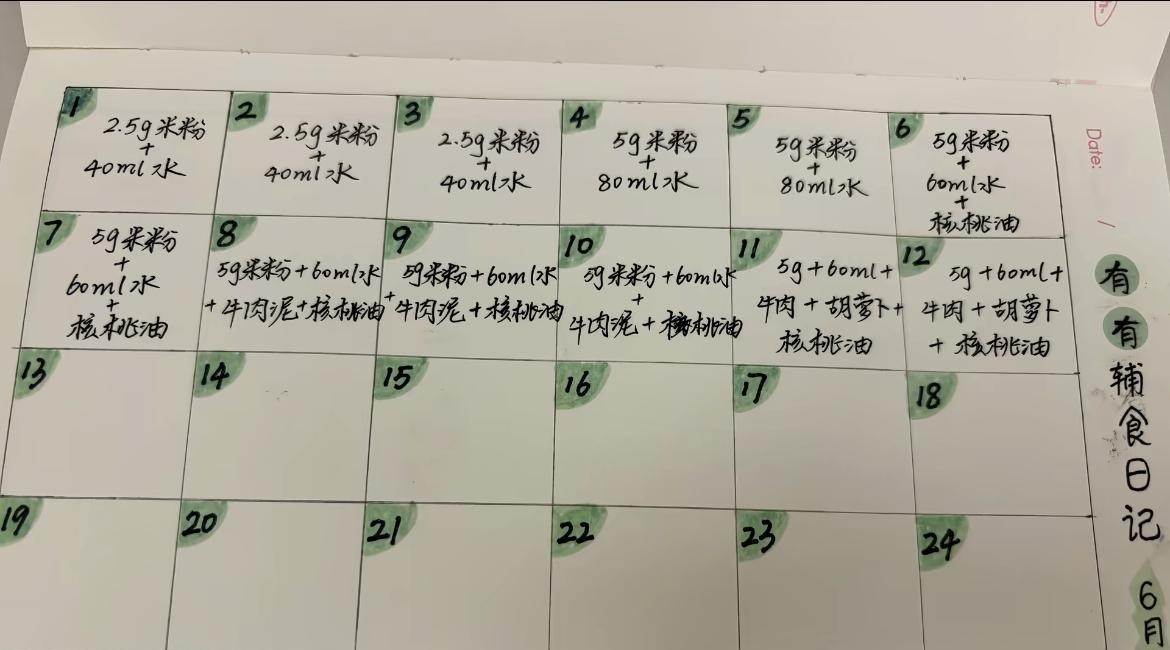 1
2.5g米粉
+
40ml水
2
2.5g米粉
+
40ml水
3
2.5g米粉
+
40ml水
4
5g米粉
+
80ml水
5
5g米粉
+
80ml水
6
5g米粉
+
60ml水
+
核桃油
7
5g米粉
+
60ml水
+
核桃油
8
5g米粉+60ml水
+牛肉泥+核桃油
9
5g米粉+60ml水
+牛肉泥+核桃油
10
5g米粉+60ml水
+
牛肉泥+核桃油
11
5g+60ml+
牛肉+胡萝卜+
核桃油
12
5g+60ml+
牛肉+胡萝卜
+核桃油
13
14
15
16
17
18
19
20
21
22
23
24
Date:
/
有有辅食日记
6月